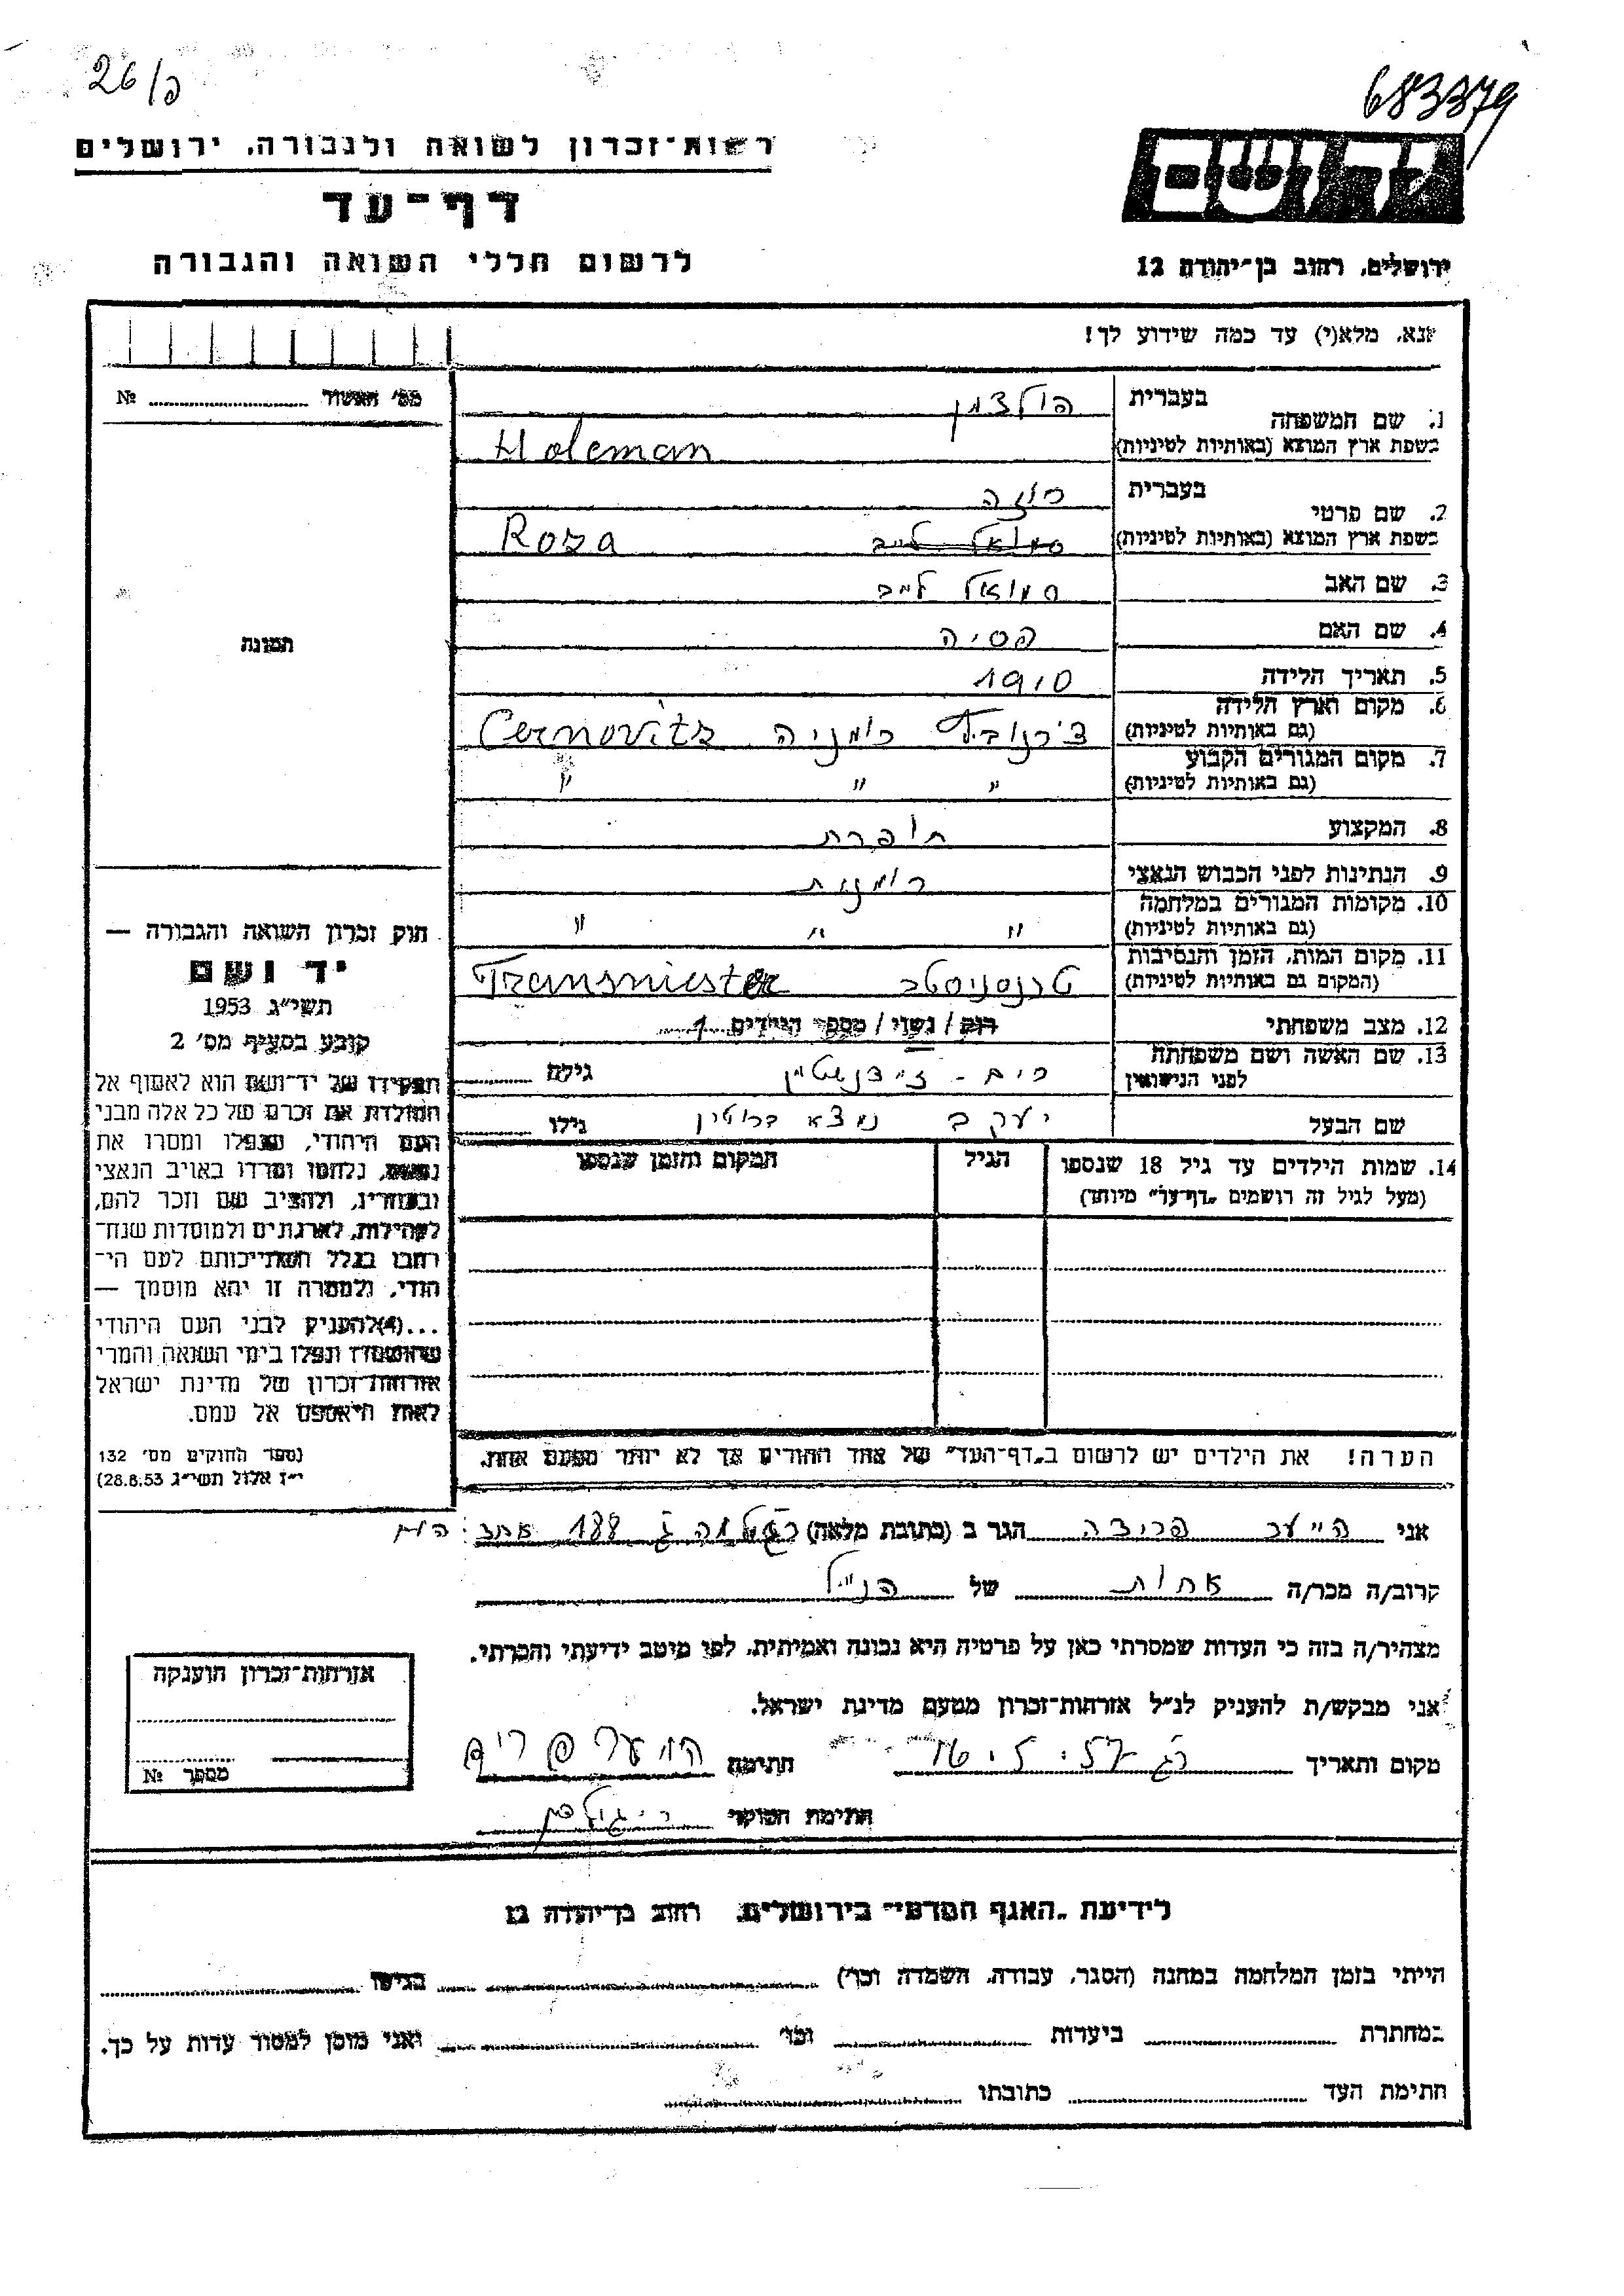 26/פ
683379
רשות־זכרון לשואה ולגבורה, ירושלים
דף־עד
לרשום חללי השואה והגבורה
יד ושם
ירושלים, רחוב בן־יהודה 12
נא, מלא(י) עד כמה שידוע לך!
מס' האשוד № ........
1. שם המשפחה
בעברית הולצמן
בשפת ארץ המוצא (באותיות לטיניות) Holcman
2. שם פרטי
בעברית רוזה
בשפת ארץ המוצא (באותיות לטיניות) סמואל לייב Roza
3. שם האב סמואל לייב
4. שם האם פסיה
5. תאריך הלידה 1910
6. מקום וארץ הלידה
(גם באותיות לטיניות) צ'רנוביץ רומניה Cernovitz
7. מקום המגורים הקבוע
(גם באותיות לטיניות) " " "
8. המקצוע תופרת
9. הנתינות לפני הכבוש הנאצי רומנית
10. מקומות המגורים במלחמה
(גם באותיות לטיניות) " " "
11. מקום המות, הזמן והנסיבות
(המקום גם באותיות לטיניות) טרנסניסטר Transniester
12. מצב משפחתי רוק / נשוי / מספר הילדים 1
13. שם האשה ושם משפחתה
לפני הנישואין גילה
שם הבעל יעקב גילו
14. שמות הילדים עד גיל 18 שנספו
(מעל לגיל זה רושמים "דף־עד" מיוחד)
הגיל
המקום והזמן שנספו
תמונה
חוק זכרון השואה והגבורה —
יד ושם
תשי״ג 1953
קובע בסעיף מס' 2
תפקידו של יד־ושם הוא לאסוף אל
המולדת את זכרם של כל אלה מבני
העם היהודי, שנפלו ומסרו את
נפשם, נלחמו ומרדו באויב הנאצי
ובעוזריו, ולהציב שם וזכר להם,
לקהילות, לארגונים ולמוסדות שנח־
רבו בגלל השתייכותם לעם הי־
הודי, ולמטרה זו יהא מוסמך —
...(4)להעניק לבני העם היהודי
שהושמדו ונפלו בימי השואה והמרי
אזרחות־זכרון של מדינת ישראל
לאות היאספם אל עמם.
(ספר החוקים מס' 132
י״ז אלול תשי״ג 28.8.53)
הערה! את הילדים יש לרשום ב„דף־העד" של אחד ההורים אך לא יותר מפעם אחת.
אני הגר ב (כתובת מלאה) 188
קרוב/ה מכר/ה אחות של הנ"ל
מצהיר/ה בזה כי העדות שמסרתי כאן על פרטיה היא נכונה ואמיתית, לפי מיטב ידיעתי והכרתי.
אני מבקש/ת להעניק לנ״ל אזרחות־זכרון מטעם מדינת ישראל.
מקום ותאריך חתימה
חתימת הפוקד
אזרחות־זכרון הוענקה
מספר №
לידיעת „האגף המדעי" בירושלים, רחוב בן־יהודה 12
הייתי בזמן המלחמה במחנה (הסגר, עבודה, השמדה וכו') ........ בגיטו ........
במחתרת ........ ביערות ........ וכו' ........ ואני מוכן למסור עדות על כך.
חתימת העד ........ כתובתו ........